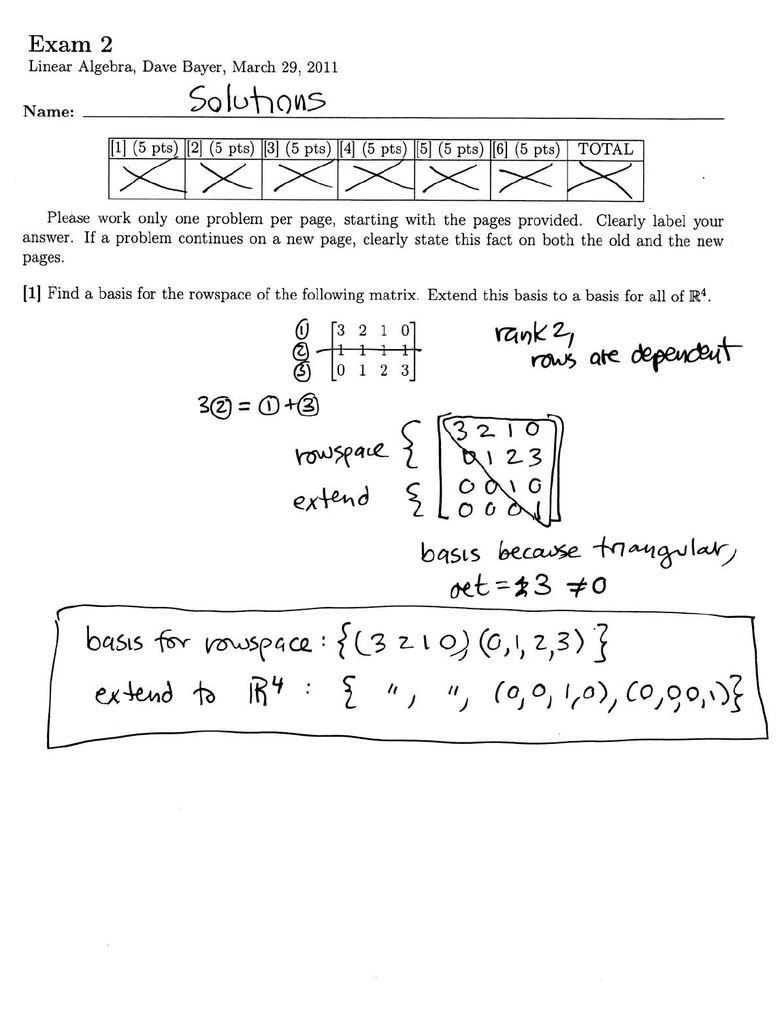 Exam 2
Linear Algebra, Dave Bayer, March 29, 2011
Name: Solutions
[1] (5 pts) [2] (5 pts) [3] (5 pts) [4] (5 pts) [5] (5 pts) [6] (5 pts) TOTAL
Please work only one problem per page, starting with the pages provided. Clearly label your
answer. If a problem continues on a new page, clearly state this fact on both the old and the new
pages.
[1] Find a basis for the rowspace of the following matrix. Extend this basis to a basis for all of ℝ⁴.
① [3 2 1 0] rank 2,
② 1 1 1 1 rows are dependent
③ [0 1 2 3]
3② = ① + ③
3 2 1 0
rowspace { 0 1 2 3
extend { 0 0 1 0
0 0 0 1
basis because triangular,
det = 3 ≠ 0
basis for rowspace: {(3 2 1 0) (0,1,2,3)}
extend to ℝ⁴ : { ", ", (0,0,1,0), (0,0,0,1)}